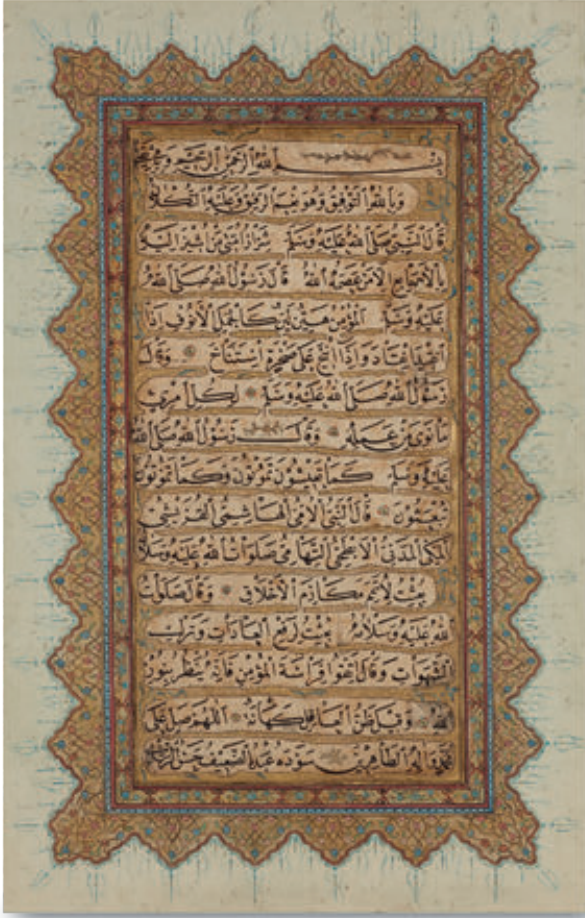 بسم الله الرحمن الرحيم وبه نستعين
وبالله التوفيق وهو نعم الرفيق وعليه التكلان
قال النبي صلى الله عليه وسلم شرار امتي من
بالا الا من عصمه الله قال رسول الله صلى الله
عليه وسلم المؤمن هين لين كالجمل الانوف اذا
انقيد انقاد واذا انيخ على صخرة استناخ وقال
رسول الله صلى الله عليه وسلم لكل امرئ
ما نوى من عمله وقال رسول الله صلى الله
عليه وسلم كما تعيشون تموتون وكما تموتون
تبعثون قال النبي الامي الهاشمي القريشي
المكي المدني الابطحي التهامي صلوات الله عليه وسلامه
بعثت لاتمم مكارم الاخلاق وقال صلوات
الله عليه وسلامه بعثت لرفع العادات وترك
الشهوات وقال اتقوا فراسة المؤمن فانه ينظر بنور
الله وقيل ظن العاقل كهانة اللهم صل على
محمد واله الطاهرين سوده عبد الضعيف